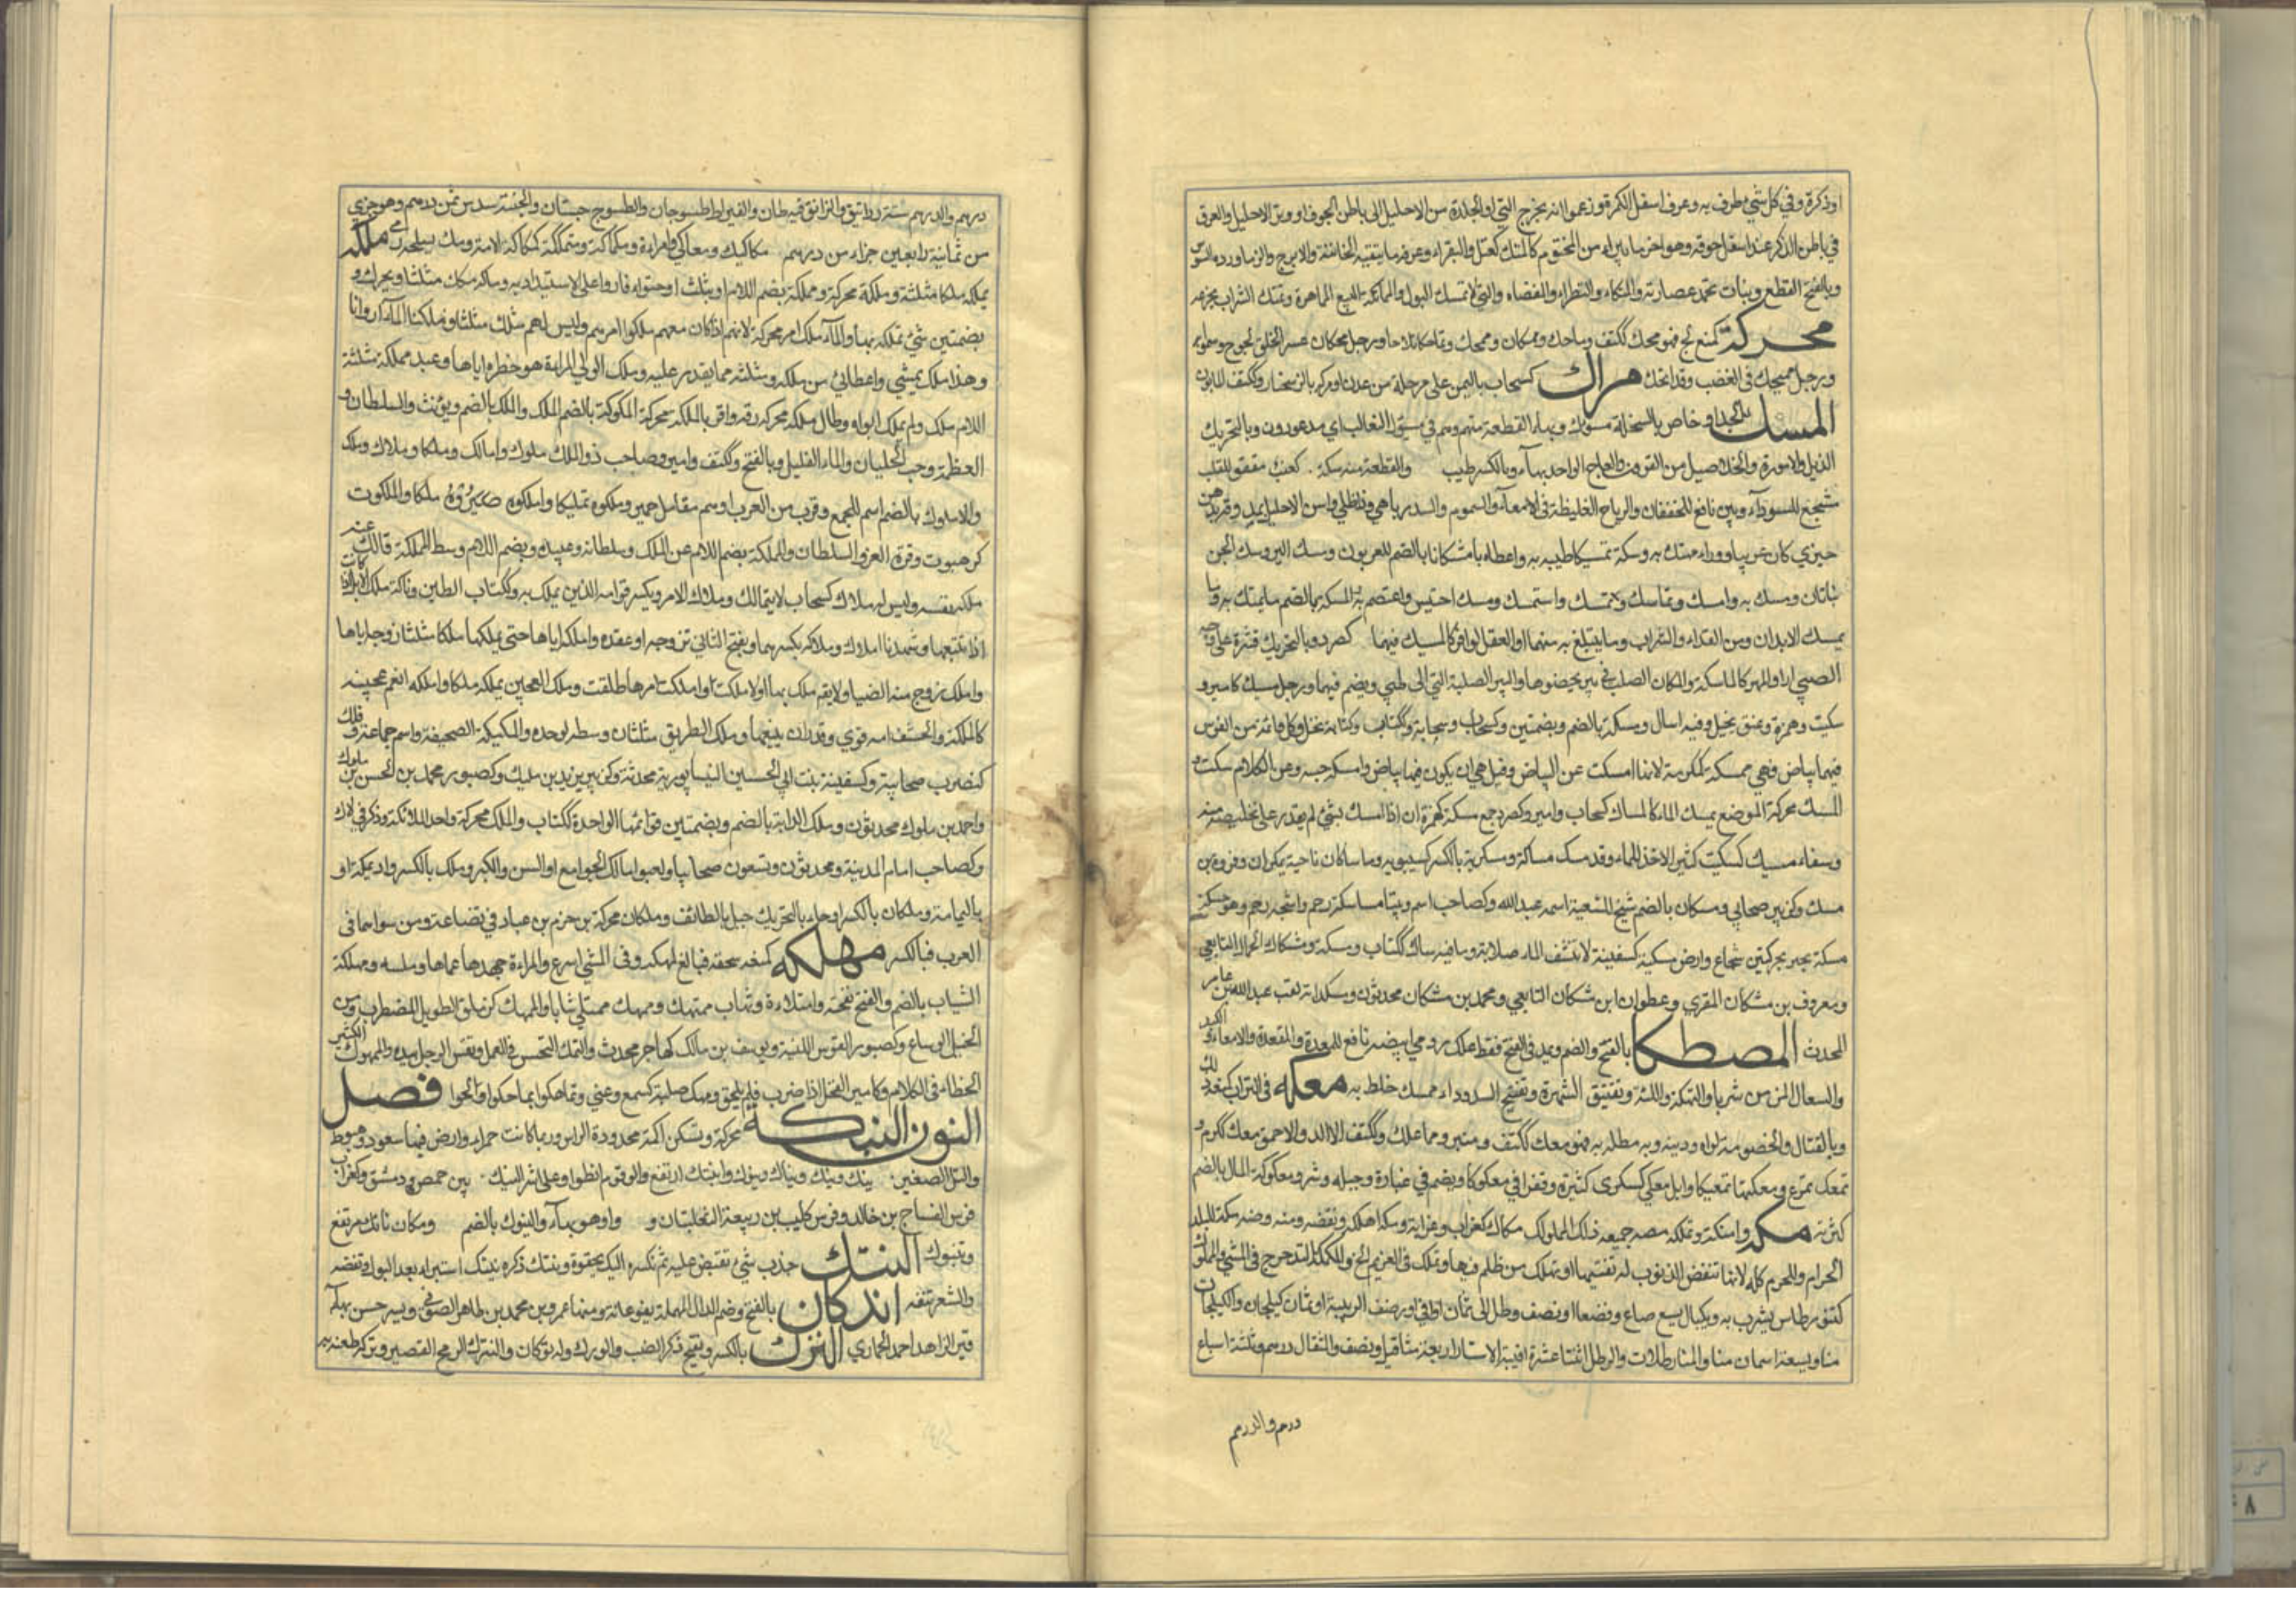 اوذكرة وفي كل شيء طرف به وعرف اسفل الكمرة وزعموا انه مخرج التي او الجلدة من الاحليل الى باطن الجوف او وتر الاحليل والعرق
في باطن الذكر عند اسفل حوقه وهو اخر ما يبرا من المختوم كالمتك كعتل والبقراء وعرقه ما تبقيه الخافضة والاترج والزماورد والسوس
وبالفتح القطع ونبات تجمد عصارته والمتكاء والبظراء والمفضاة والتي لا تمسك البول والمماتكة البيع المماهرة وتمتك الشراب تجرعه
محركة كمنع لج فهو محك ككتف وماحك ومحكان وممحك وتماحكا تلاحا ورجل محكان عسر الخلق لجوج وسموا به
ورجل ممتحك في الغضب وقد امحك مراك كسحاب باليمن على مرحلة من عدن او مركه بالزنجبار وككتف المابون
المسك الجلد او خاص بالسخلة مسوك وبهاء القطعة منه وهم في مسوك الثعالب اي مذعورون وبالتحريك
الذبل والاسورة والخلاخيل من القرون والعاج الواحد بهاء وبالكسر طيب والقطعة منه مسكة كعنب مقو للقلب
مشجع للسوداء وبين نافع للخفقان والرياح الغليظة في الامعاء والسموم والسدد باهي واذا طلي راس الاحليل بمد وقد بدهن
خيري كان غريبا ودواء ممسك به ومسكه تمسيكا طيبه به واعطاه مشكانا بالضم للعربون ومسك البر ومسك الجن
نباتان ومسك به وامسك وتماسك وتمسك واستمسك ومسك احتبس واعتصم به والمسكة بالضم ما يتمسك به وما
يمسك الابدان ومن الغذاء والشراب وما يتبلغ به منهما او العقل الوافر كالمسيك فيهما كصرد وبالتحريك قشرة على وجه
الصبي او المهر كالماسكة والمكان الصلب في بير تحفرها والبير الصلبة التي لا تحتاج الى طي ويضم فيهما ورجل مسيك كامير و
سكيت وهمزة وعنق بخيل وفيه امساك ومسكة بالضم وبضمتين وكسحاب وسحابة وككتاب وكتابة بخل وكل قائمة من الفرس
فيها بياض فهي ممسكة كمكرمة لانها امسكت عن البياض وقيل هي ان يكون فيها بياض وامسكه حبسه وعن الكلام سكت و
المسك محركة الموضع يمسك الماء كالمساك كسحاب وامير وكصرد جمع مسكة كهمزة ان اذا امسك بشيء لم يقدر على تخليصه منه
وسقاء مسيك كسكيت كثير الاخذ للماء وقد مسك مساكة ومسكوية بالكسر كسيبويه وماسكان ناحية بمكران وفروة بن
مسيك كزبير صحابي ومسكان بالضم شيخ للشيعة اسمه عبد الله وكصاحب اسم وبيننا ماسكة رحم واشجة رحم وهو حسكة
مسكة بحير بحركتين شجاع وارض مسيكة كسفينة لا تنشف الماء صلابة وما فيه مساك ككتاب ومسكة ومشكاك الحمال التابعي
ومعروف بن مشكان المقري وعطوان ابن مشكان التابعي ومحمد بن مشكان محدثون ومسكدانة لقب عبد الله بن عامر
المحدث المصطكا بالفتح والضم ويمد في الفتح فقط علك رومي ابيضه نافع للمعدة والمقعدة والامعاء والكبد
والسعال المزمن شربا والنكهة واللثة وتفتيق الشهوة وتفتيح السدد ودواء ممسك خلط به معكه في التراب كمنعه دلكه
وبالقتال والخصومة لواه ودينه وبه مطله به فهو معك ككتف ومنبر ومماعك وككتف الالد والاحمق معك ككرم و
تمعك تمرغ ومعكتها تمعيكا وابل معكى كسكرى كثيرة وقعوا في معكوكاء ويضم في غبارة وجبلة وشر ومعكوكة المال بالضم
كثرته مكه وامتكه وتمككه مصه جميعه ذلك المملوك مكاك كغراب وغرابة ومكه اهلكه ونقصه ومنه وضه مكة للبلد
الحرام وللحرم كله لانها تنقص الذنوب او تفنيها او تهلك من ظلم فيها وتمكك في الغريم الح والمكمكة التدحرج في المشي والمكوك
كتنور طاس يشرب به ومكيال يسع صاع ونصفا او نصف رطل الى ثمان اواقي او نصف الويبة او ثلث كيلجات والكيلجات
منا وسبعة اثمان منا والمنا رطلان والرطل اثنتا عشرة اوقية الاستار اربعة مثاقيل ونصف والمثقال درهم وثلثة اسباع
درهم والدرهم
درهم والدرهم ستة دوانيق والدانق قيراطان والقيراط طسوجان والطسوج حبتان والحبة سدس ثمن درهم وهو جزء
من ثمانية واربعين جزاء من درهم مكاكيك ومكاكي وامراءة ومكماكة ومتمكمكة كمكاكة الامة ومك بسلحه رمى ملكه
يملكه ملكا مثلثة وملكة محركة ومملكة بضم اللام او يثلث احتواه قادرا على الاستبداد به وماله ملك مثلثا ويحرك و
بضمتين شيء تملكه بها والماء ملك امر محركة لانهم اذا كان معهم ملكوا امرهم وليس لهم ملك مثلثا وملكنا الماء اروانا
وهذا ملك يميني واعطاني من ملكه مثلثة مما يقدر عليه وملك الولي المراة هو حظره اياها وعبد مملكة مثلثة
اللام ملك ولم يملك ابواه وطال ملكه محركة رقه واقر بالملكة محركة الملوكة بالضم الملك والملك بالضم ويؤنث والسلطان و
العظمة وحب الجلبان والماء القليل وبالفتح وككتف وامير وصاحب ذو الملك ملوك واملاك وملكا وملاك وملك
والاملوك بالضم اسم للجمع وقوم من العرب او هم مقاول حمير وملكوه تمليكا واملكوه صيروه ملكا والملكوت
كرهبوت وترقوة العز والسلطان والمملكة بضم اللام عز الملك وسلطانه وعبيده وبضم اللام وسط المملكة تمالك عنه
ملك نفسه وليس له ملاك كسحاب لا يتمالك وملاك الامر ويكسر قوامه الذي يملك به وككتاب الطين وناقة ملاك الابل اذا كانت
اذا تتبعها وشهدنا املاك وملاكه بكسرهما ويفتح الثاني تزوجه او عقده واملكه اياها حتى يملكها ملكا مثلثا زوجه اياها
واملك زوج منه ايضا ولا يقال ملك بها ولا املكت واملكت امرها طلقت وملك العجين يملكه ملكا واملكه انعم عجينه
كالملكة والخشف امه قوي وقدر ان يتبعها وملك الطريق مثلثا وسطه او حده والمليكة الصحيفة واسم جماعة
كنصرت صحابية وكسفينة بنت ابي الحسين النيسابورية محدثة وكزبير يزيد بن مليك وكصبور محمد بن الحسن بن ملوك
واحمد بن ملوك محدثون وملك الدابة بالضم وبضمتين قوائمها الواحد ككتاب والملك محركة واحد الملائكة وذكر في لاك
وكصاحب امام المدينة ومحدثون وتسعون صحابيا وابو مالك الجوع او السن والكبر وملك بالكسر واد بمكة او
باليمامة وملكان بالكسر او حاء بالتحريك جبل بالطائف وملكان محركة بن حزم بن عباد في قضاعة ومن سواهما في
العرب فبالكسر مهكه كمنعه سحقه فبالغ كمهكه وفي المشي اسرع والمراءة جهدها جماعا وملسه ومهلكة
الشباب بالضم والفتح نفخته وامتلاءه وشاب ممتهك وممهك ممتلي شبابا والممهك كزملق الطويل المضطرب ومن
الخيل الوساع وكصبور القوس اللينة ويوسف بن ماهك كهاجر محدث والتمهك التحسن في العمل ونقس الرجل بيده والممهوك الكثير
الخطاء في الكلام وكامير الفحل اذا ضرب فلم يلقح ومهك صلبه كسمع وعني وتماهكوا تماحكوا وتلحوا فصل
النون النبكة محركة وتسكن اكمة محدودة الراس وربما كانت حمراء وارض فيها صعود وهبوط
والتل الصغير نبك ونبك ونباك ونبوك وانتبك ارتفع والقوم انطووا على شر النبك بين حمص ودمشق وكغراب
فرس السفاح بن خالد وفرس كليب بن ربيعة التغلبيان و واد وهو بهاء والنبوك بالضم ومكان نابك مرتفع
وتنبوك النتك جذب شيء تقبض عليه ثم تكسره اليك بجفوة ونتك ذكره ينتك استبراه بعد البول ونفضه
والشعر نتفه اندكان بالفتح وضم الدال المهملة بفرغانة ومنها عمر بن محمد بن طاهر الصوفي وبسرخس بها
قبر الزاهد احمد الحمادي النزك بالكسر ويفتح ذكر الضب والورل وله نزكان والنيزك الرمح القصير ونزكه طعنه به